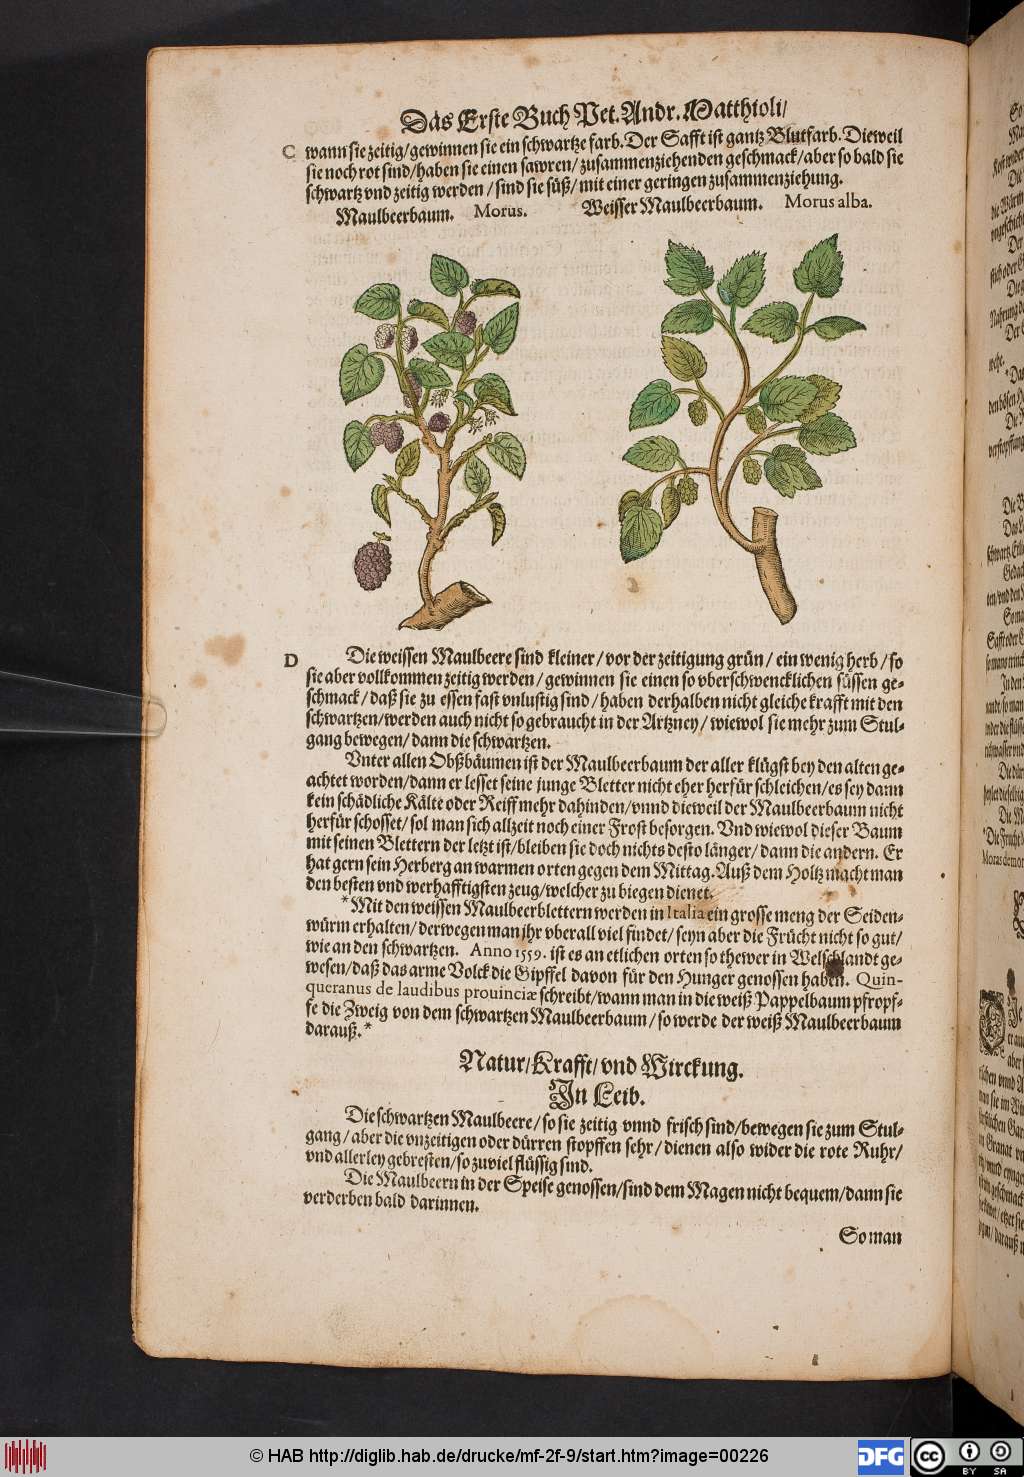 Das Erste Buch Pet. Andr. Matthioli/
C wann sie zeitig/gewinnen sie ein schwartze farb. Der Safft ist gantz Blutfarb. Dieweil
sie noch rot sind/haben sie einen sawren/zusammenziehenden geschmack/aber so bald sie
schwartz vnd zeitig werden/sind sie süß/mit einer geringen zusammenziehung.
Maulbeerbaum. Morus. Weisser Maulbeerbaum. Morus alba.
D Die weissen Maulbeere sind kleiner/vor der zeitigung grün/ein wenig herb/so
sie aber vollkommen zeitig werden/gewinnen sie einen so vberschwencklichen süssen ge-
schmack/daß sie zu essen fast vnlustig sind/haben derhalben nicht gleiche krafft mit den
schwartzen/werden auch nicht so gebraucht in der Artzney/wiewol sie mehr zum Stul-
gang bewegen/dann die schwartzen.
Vnter allen Obßbäumen ist der Maulbeerbaum der aller klügst bey den alten ge-
achtet worden/dann er lesset seine junge Bletter nicht eher herfür schleichen/es sey dann
kein schädliche Kälte oder Reiff mehr dahinden/vnnd dieweil der Maulbeerbaum nicht
herfür schosset/sol man sich allzeit noch einer Frost besorgen. Vnd wiewol dieser Baum
mit seinen Blettern der letzt ist/bleiben sie doch nichts desto länger/dann die andern. Er
hat gern sein Herberg an warmen orten gegen dem Mittag. Auß dem Holtz macht man
den besten vnd werhafftigsten zeug/welcher zu biegen dienet.
*Mit den weissen Maulbeerblettern werden in Italia ein grosse meng der Seiden-
würm erhalten/derwegen man jhr vberall viel findet/seyn aber die Frücht nicht so gut/
wie an den schwartzen. Anno 1559. ist es an etlichen orten so thewer in Welschlandt ge-
wesen/daß das arme Volck die Gipffel davon für den Hunger genossen haben. Quin-
queranus de laudibus prouinciæ schreibt/wann man in die weiß Pappelbaum pfropf-
fe die Zweig von dem schwartzen Maulbeerbaum/so werde der weiß Maulbeerbaum
darauß.*
Natur/Krafft/vnd Wirckung.
In Leib.
Die schwartzen Maulbeere/so sie zeitig vnnd frisch sind/bewegen sie zum Stul-
gang/aber die vnzeitigen oder dürren stopffen sehr/dienen also wider die rote Ruhr/
vnd allerley gebresten/so zuviel flüssig sind.
Die Maulbeern in der Speise genossen/sind dem Magen nicht bequem/dann sie
verderben bald darinnen.
So man
© HAB http://diglib.hab.de/drucke/mf-2f-9/start.htm?image=00226
DFG
cc
BY SA